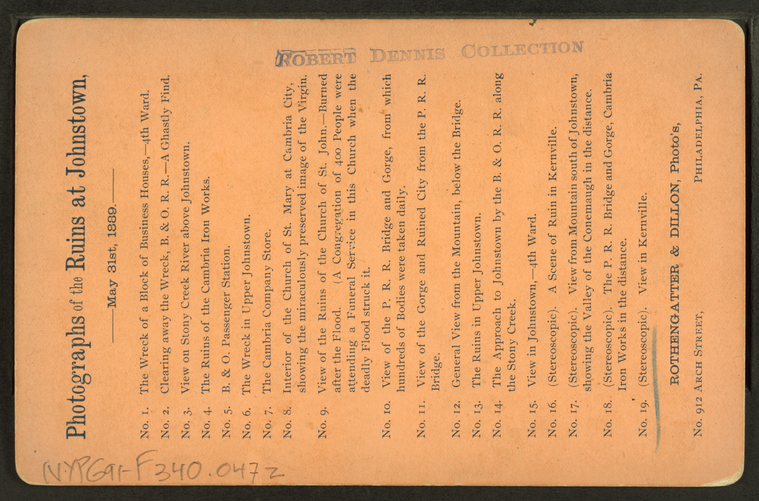 ROBERT DENNIS COLLECTION
Photographs of the Ruins at Johnstown,
May 31st, 1889.
No. 1. The Wreck of a Block of Business Houses,—4th Ward.
No. 2. Clearing away the Wreck, B. & O. R. R.—A Ghastly Find.
No. 3. View on Stony Creek River above Johnstown.
No. 4. The Ruins of the Cambria Iron Works.
No. 5. B. & O. Passenger Station.
No. 6. The Wreck in Upper Johnstown.
No. 7. The Cambria Company Store.
No. 8. Interior of the Church of St. Mary at Cambria City,
showing the miraculously preserved image of the Virgin.
No. 9. View of the Ruins of the Church of St. John.—Burned
after the Flood. (A Congregation of 400 People were
attending a Funeral Service in this Church when the
deadly Flood struck it.
No. 10. View of the P. R. R. Bridge and Gorge, from which
hundreds of Bodies were taken daily.
No. 11. View of the Gorge and Ruined City from the P. R. R.
Bridge.
No. 12. General View from the Mountain, below the Bridge.
No. 13. The Ruins in Upper Johnstown.
No. 14. The Approach to Johnstown by the B. & O. R. R. along
the Stony Creek.
No. 15. View in Johnstown,—4th Ward.
No. 16. (Stereoscopic). A Scene of Ruin in Kernville.
No. 17. (Stereoscopic). View from Mountain south of Johnstown,
showing the Valley of the Conemaugh in the distance.
No. 18. (Stereoscopic). The P. R. R. Bridge and Gorge, Cambria
Iron Works in the distance.
No. 19. (Stereoscopic). View in Kernville.
ROTHENGATTER & DILLON, Photo's,
No. 912 ARCH STREET, PHILADELPHIA, PA.
NYPG91-F340.047z